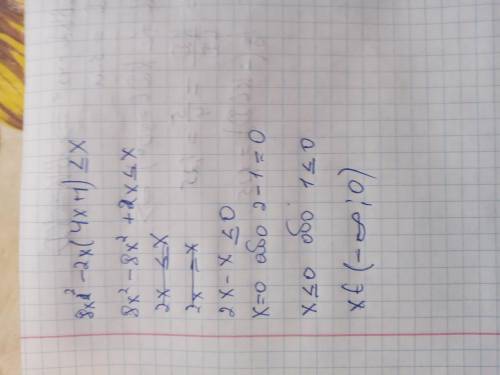 8x² - 2x(4x+1) ≤ x
8x² - 8x² + 2x ≤ x
2x ≤ x
2x - x ≤ 0
x = 0 або 2 - 1 = 0
x ≤ 0 або 1 ≤ 0
x ∈ (-∞; 0)